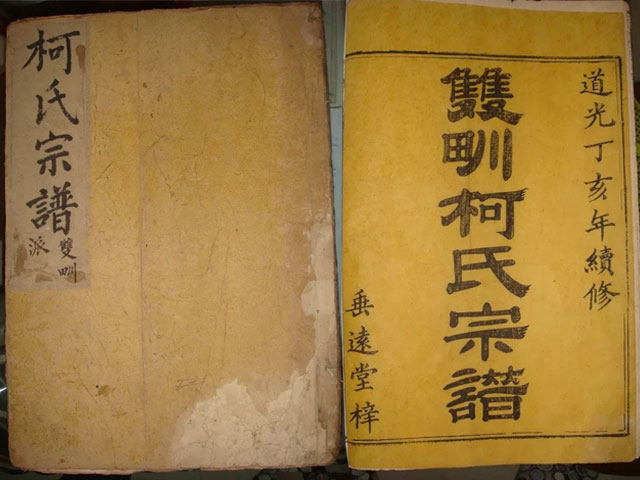 柯氏宗譜
雙甽
派
道光丁亥年續修
雙甽柯氏宗譜
垂遠堂梓